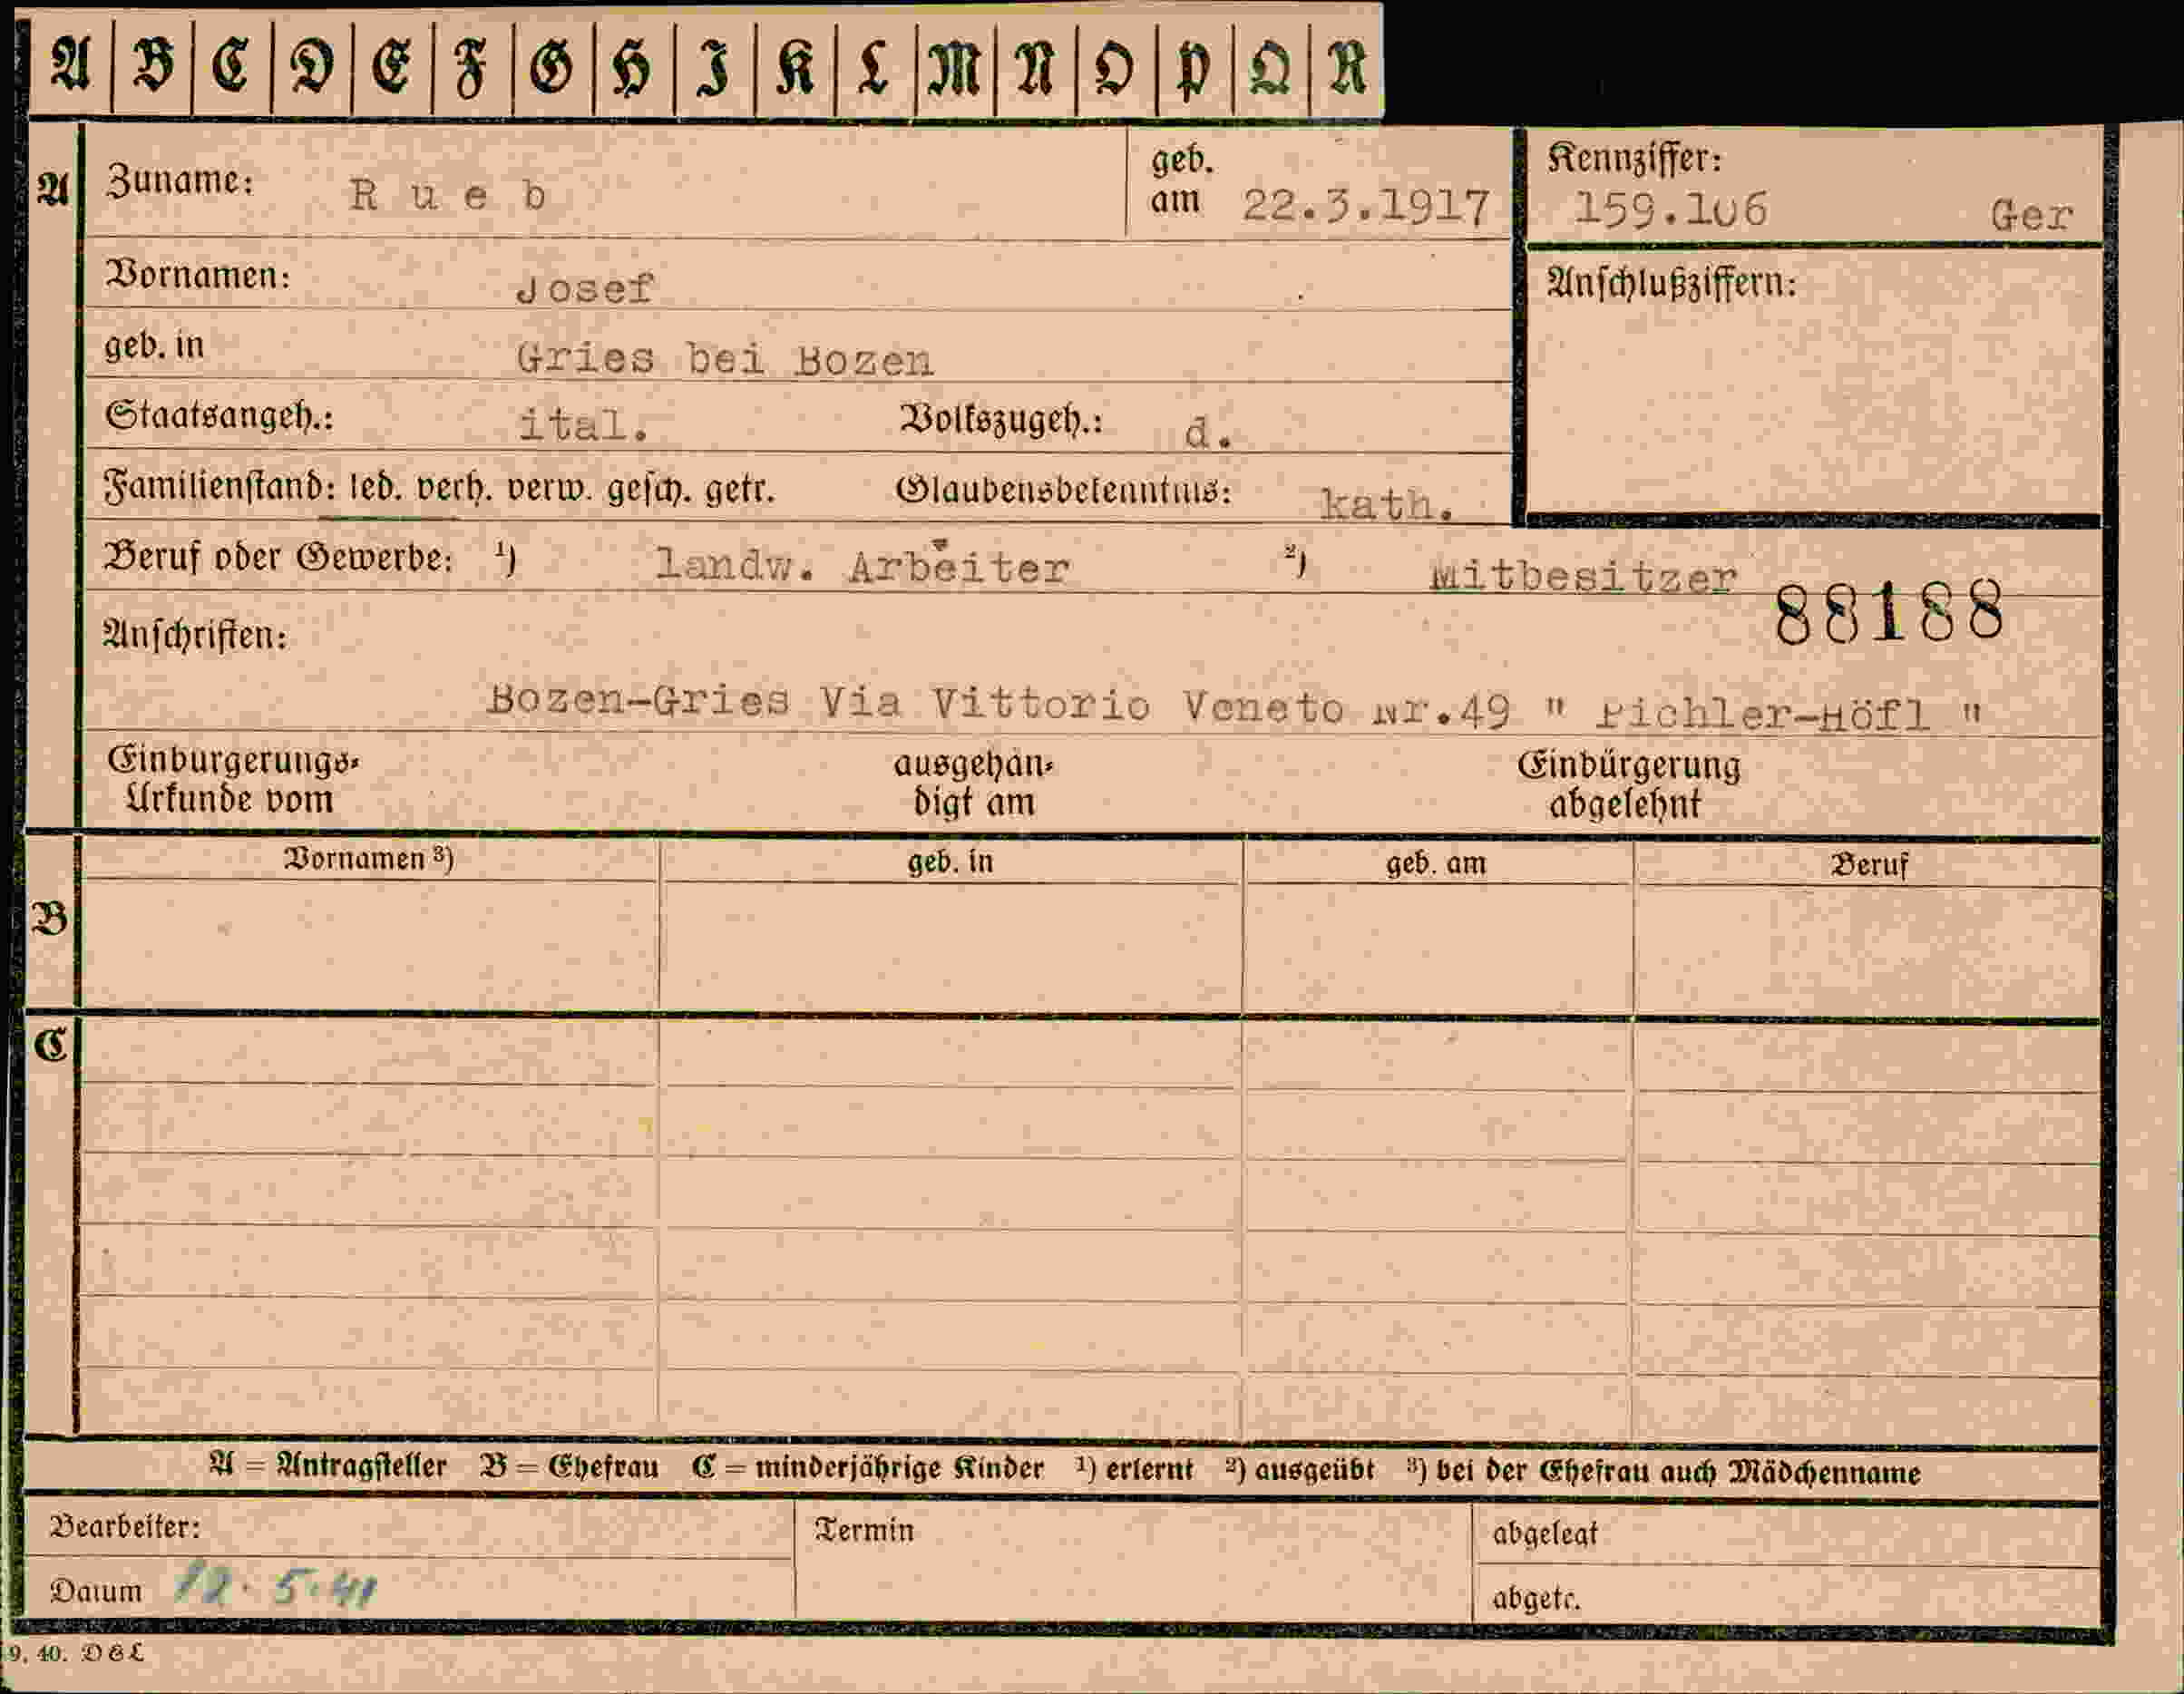 A B C D E F G H I K L M N O P Q R
A Zuname: Rueb geb. am 22.3.1917 Kennziffer: 159.106 Ger
Vornamen: Josef Anschlußziffern:
geb. in Gries bei Bozen
Staatsangeh.: ital. Volkszugeh.: d.
Familienstand: led. verh. verw. gesch. getr. Glaubensbekenntnis: kath.
Beruf oder Gewerbe: ¹) landw. Arbeiter ²) Mitbesitzer
88188
Anschriften:
Bozen-Gries Via Vittorio Veneto Nr.49 " Pichler-Höfl "
Einbürgerungs- ausgehän- Einbürgerung
Urkunde vom digt am abgelehnt
Vornamen ³) geb. in geb. am Beruf
B
C
A = Antragsteller B = Ehefrau C = minderjährige Kinder ¹) erlernt ²) ausgeübt ³) bei der Ehefrau auch Mädchenname
Bearbeiter: Termin abgelegt
Datum 12.5.41 abgetr.
9. 40. DGL